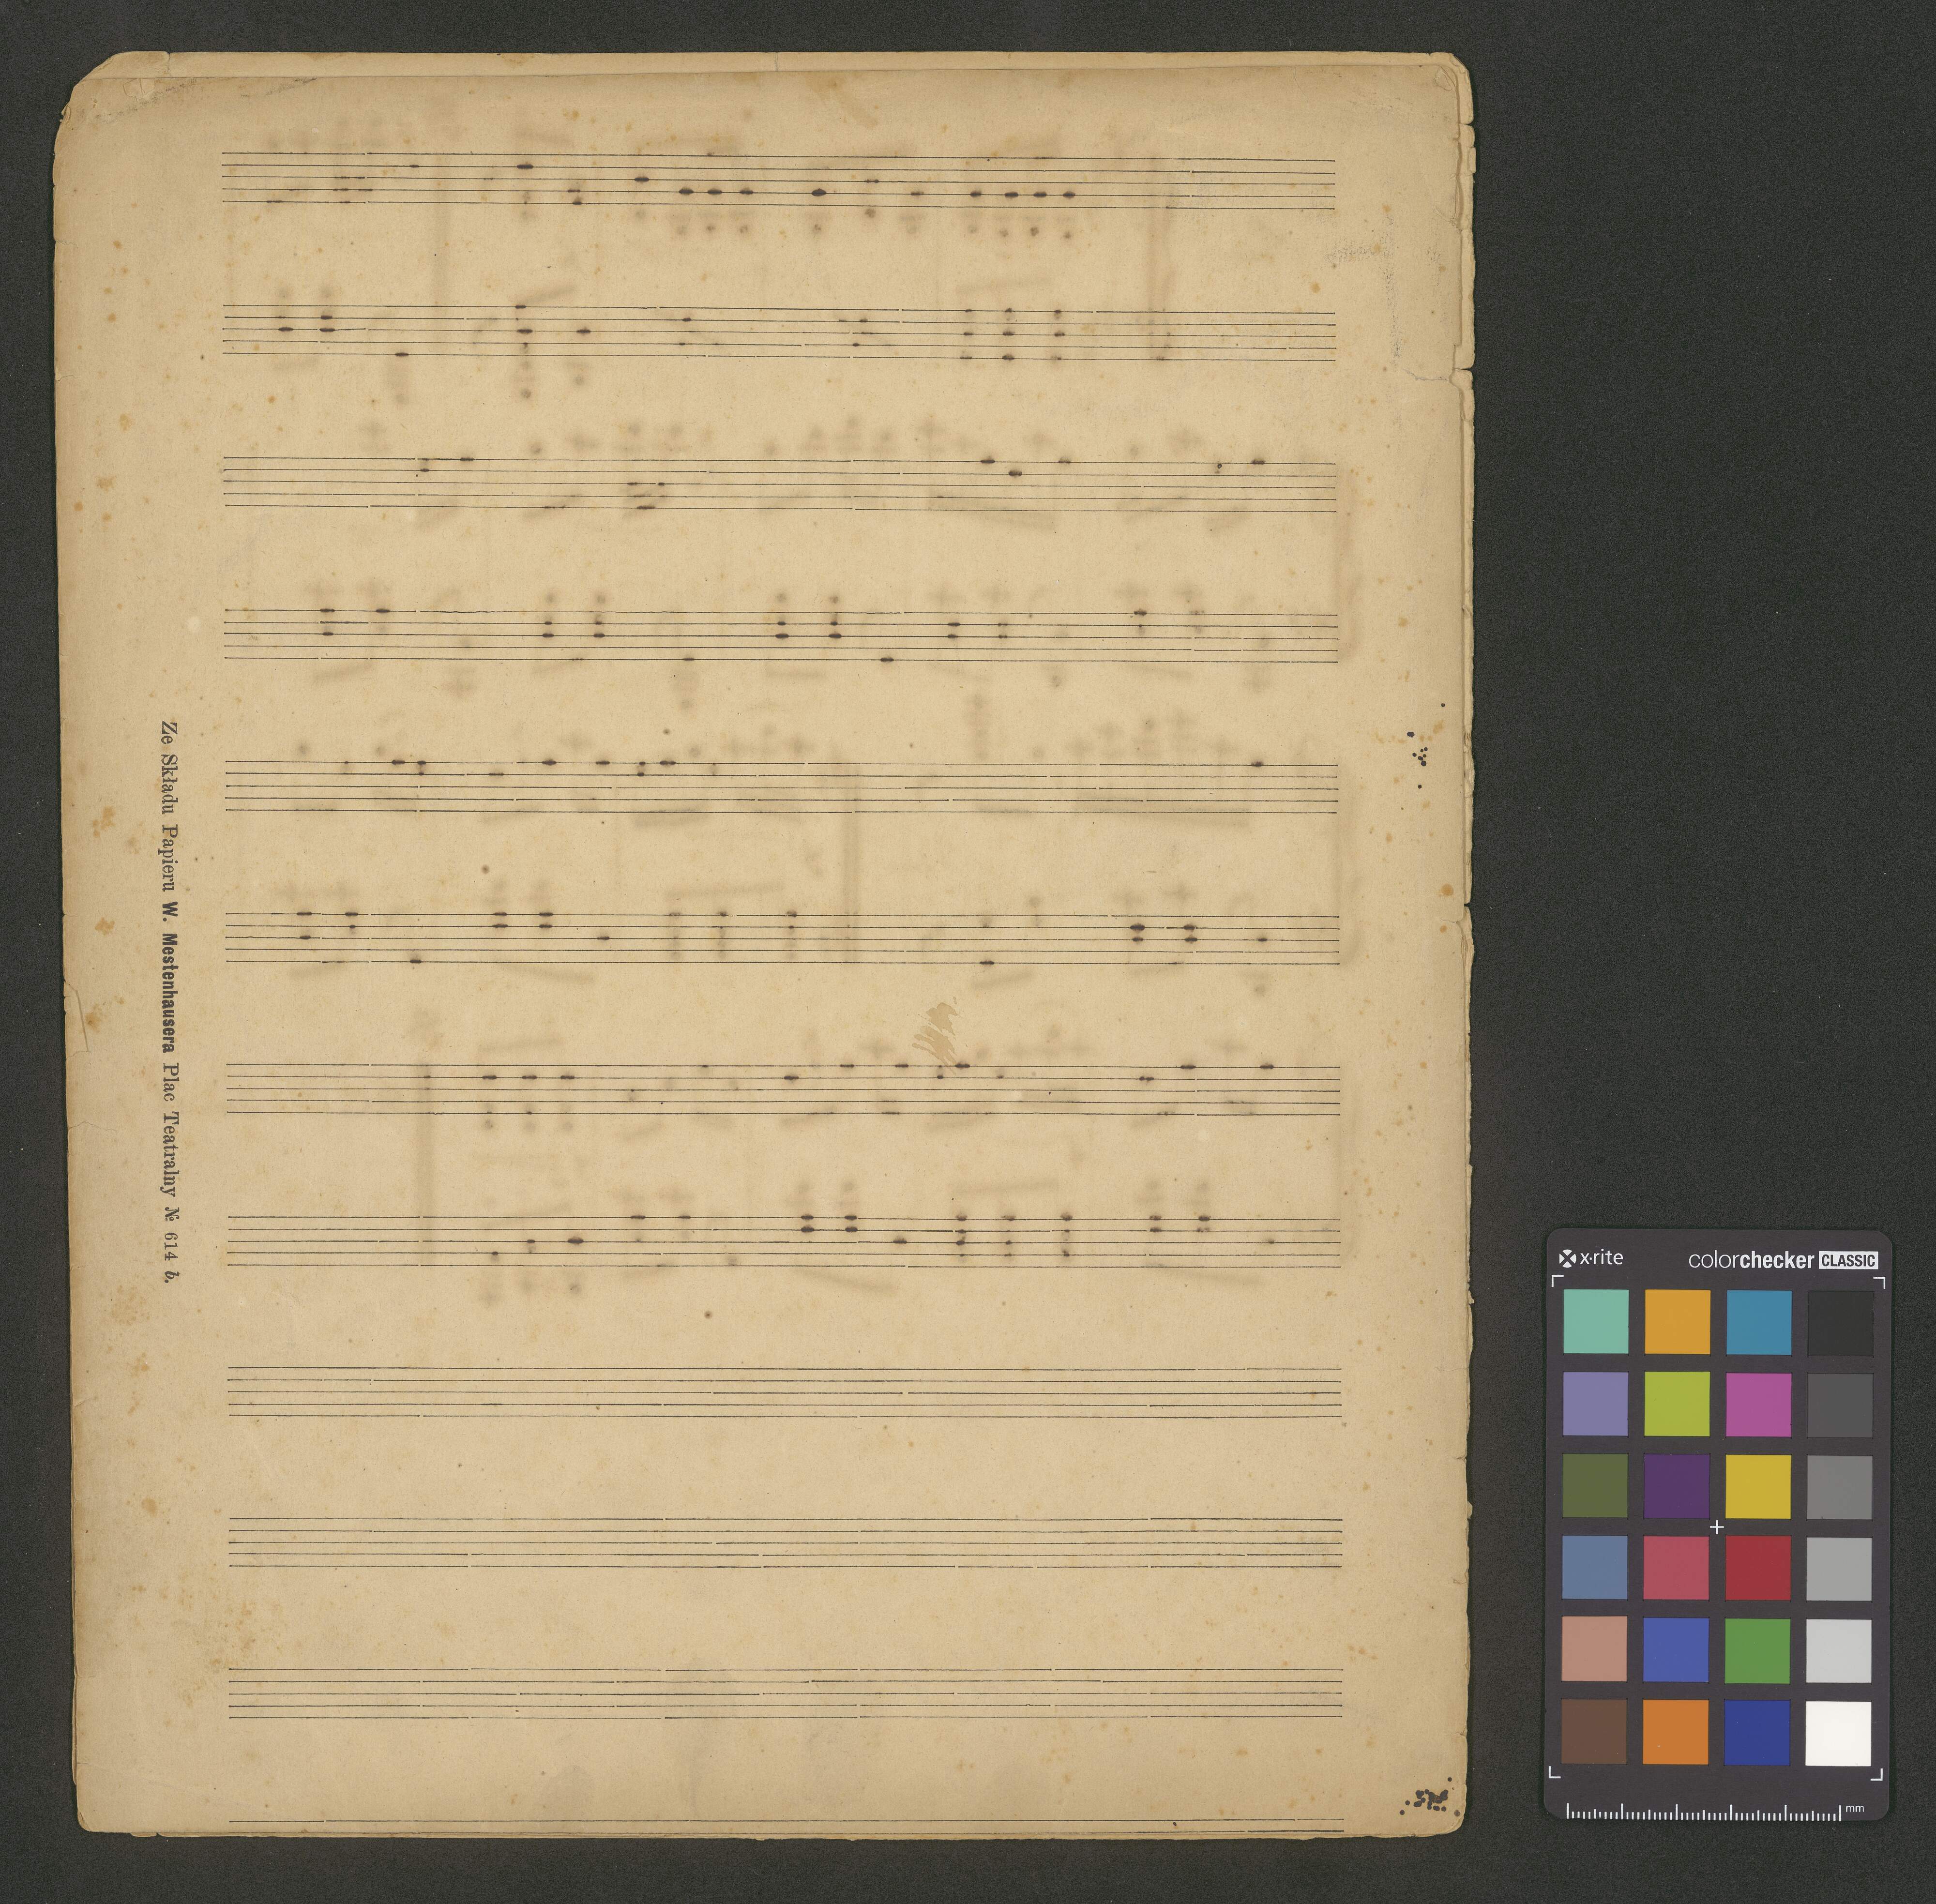 Ze Składu Papieru W. Mestenhausera Plac Teatralny № 614 b.
x·rite
colorchecker CLASSIC
mm